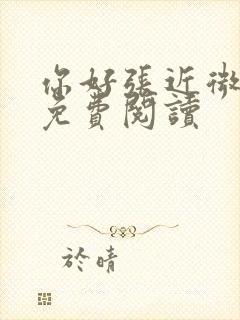 你好張近微
免費閱讀
於晴